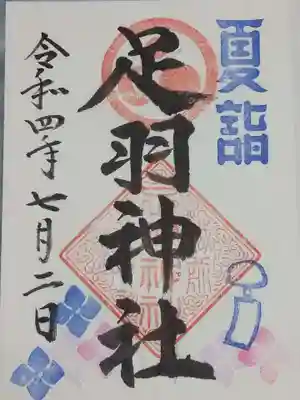 夏詣
足羽神社
令和四年七月二日